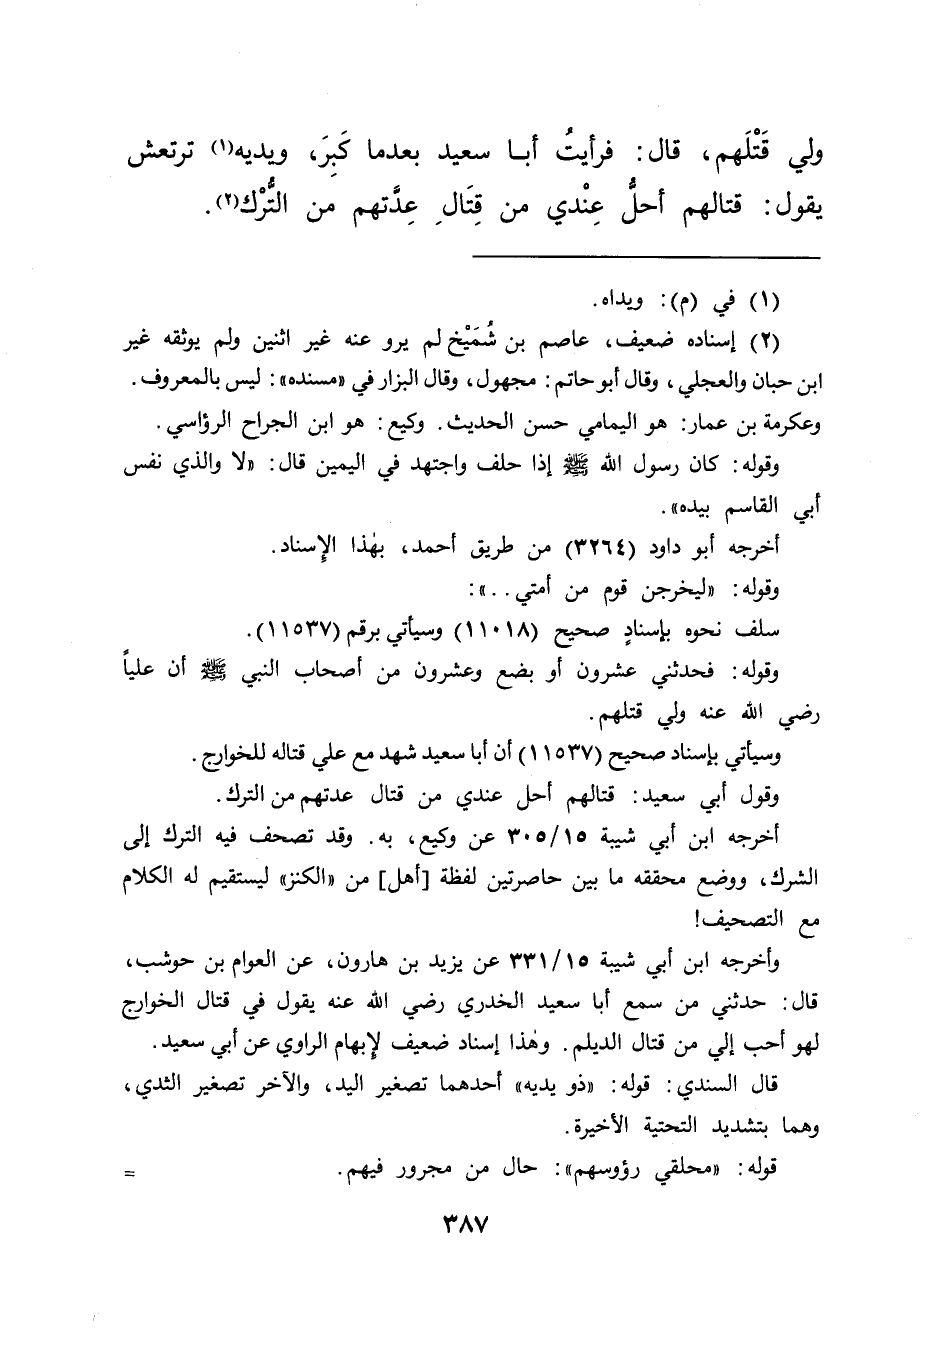 ولي قَتْلَهم، قال: فرأيتُ أبا سعيد بعدما كَبِرَ، ويديه(١) ترتعش
يقول: قتالهم أحلُّ عِنْدي من قِتَالِ عِدَّتهم من التُّرْك(٢).
(١) في (م): ويداه.
(٢) إسناده ضعيف، عاصم بن شُمَيْخ لم يرو عنه غير اثنين ولم يوثقه غير
ابن حبان والعجلي، وقال أبو حاتم: مجهول، وقال البزار في «مسنده»: ليس بالمعروف.
وعكرمة بن عمار: هو اليمامي حسن الحديث. وكيع: هو ابن الجراح الرؤاسي.
وقوله: كان رسول الله ﷺ إذا حلف واجتهد في اليمين قال: «لا والذي نفس
أبي القاسم بيده».
أخرجه أبو داود (٣٢٦٤) من طريق أحمد، بهٰذا الإسناد.
وقوله: «ليخرجن قوم من أمتي..»:
سلف نحوه بإسنادٍ صحيح (١١٠١٨) وسيأتي برقم (١١٥٣٧).
وقوله: فحدثني عشرون أو بضع وعشرون من أصحاب النبي ﷺ أن علياً
رضي الله عنه ولي قتلهم.
وسيأتي بإسناد صحيح (١١٥٣٧) أن أبا سعيد شهد مع علي قتاله للخوارج.
وقول أبي سعيد: قتالهم أحل عندي من قتال عدتهم من الترك.
أخرجه ابن أبي شيبة ٣٠٥/١٥ عن وكيع، به. وقد تصحف فيه الترك إلى
الشرك، ووضع محققه ما بين حاصرتين لفظة [أهل] من «الكنز» ليستقيم له الكلام
مع التصحيف!
وأخرجه ابن أبي شيبة ٣٣١/١٥ عن يزيد بن هارون، عن العوام بن حوشب،
قال: حدثني من سمع أبا سعيد الخدري رضي الله عنه يقول في قتال الخوارج
لهو أحب إلي من قتال الديلم. وهٰذا إسناد ضعيف لإبهام الراوي عن أبي سعيد.
قال السندي: قوله: «ذو يديه» أحدهما تصغير اليد، والآخر تصغير الثدي،
وهما بتشديد التحتية الأخيرة.
قوله: «محلقي رؤوسهم»: حال من مجرور فيهم. =
٣٨٧